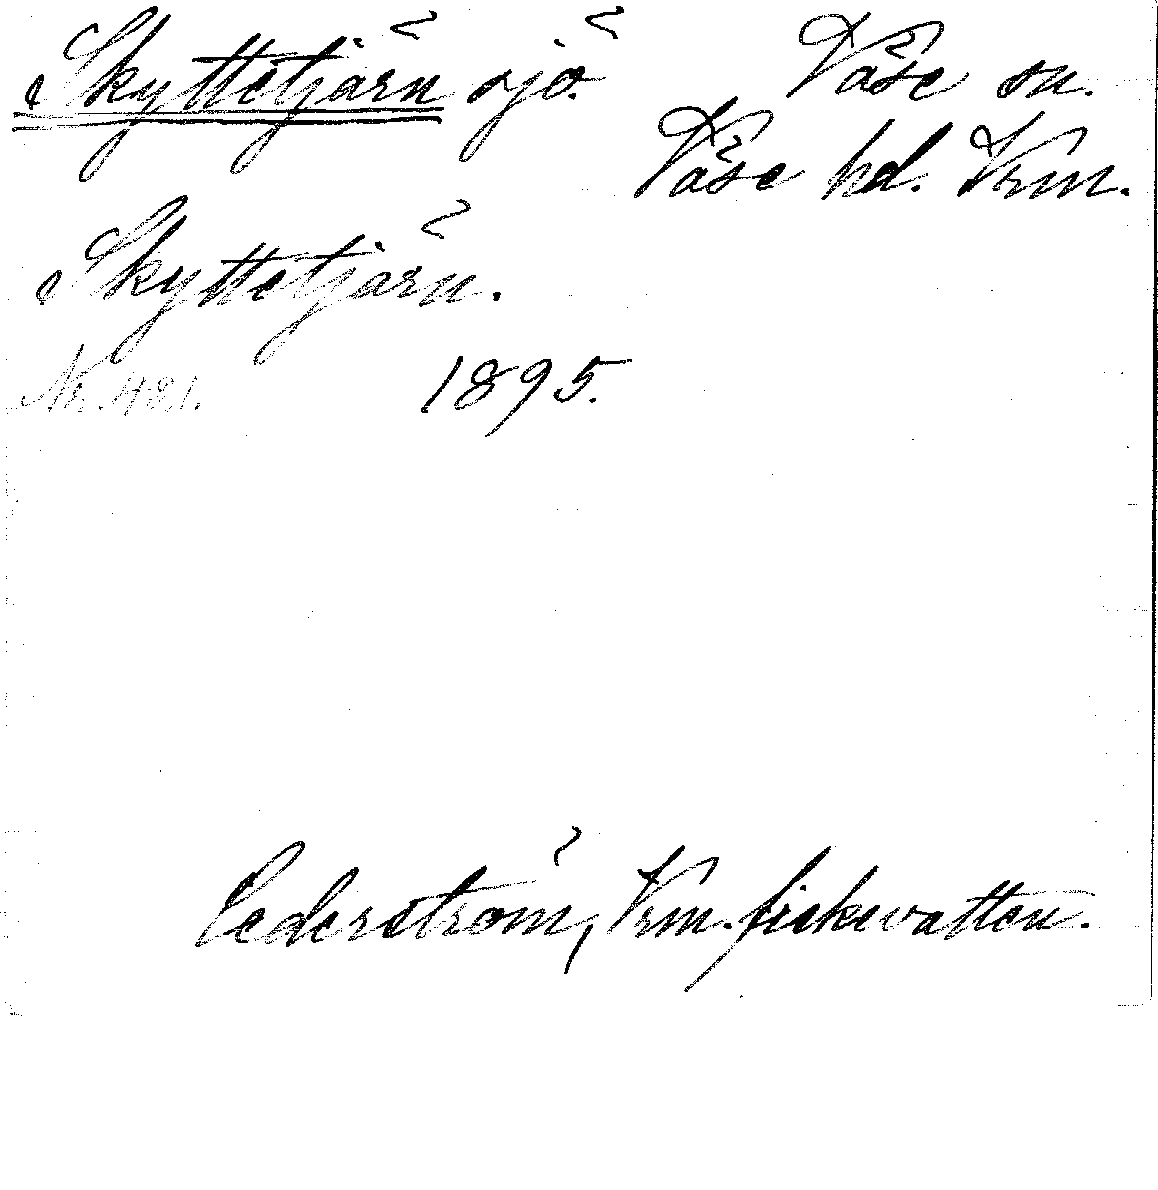 Skyttetjärn sjö. Väse sn.
Väse hd. Vrm.
Skyttetjärn.
Nr. 421. 1895.
Cederström, Vrm. fiskevatten.